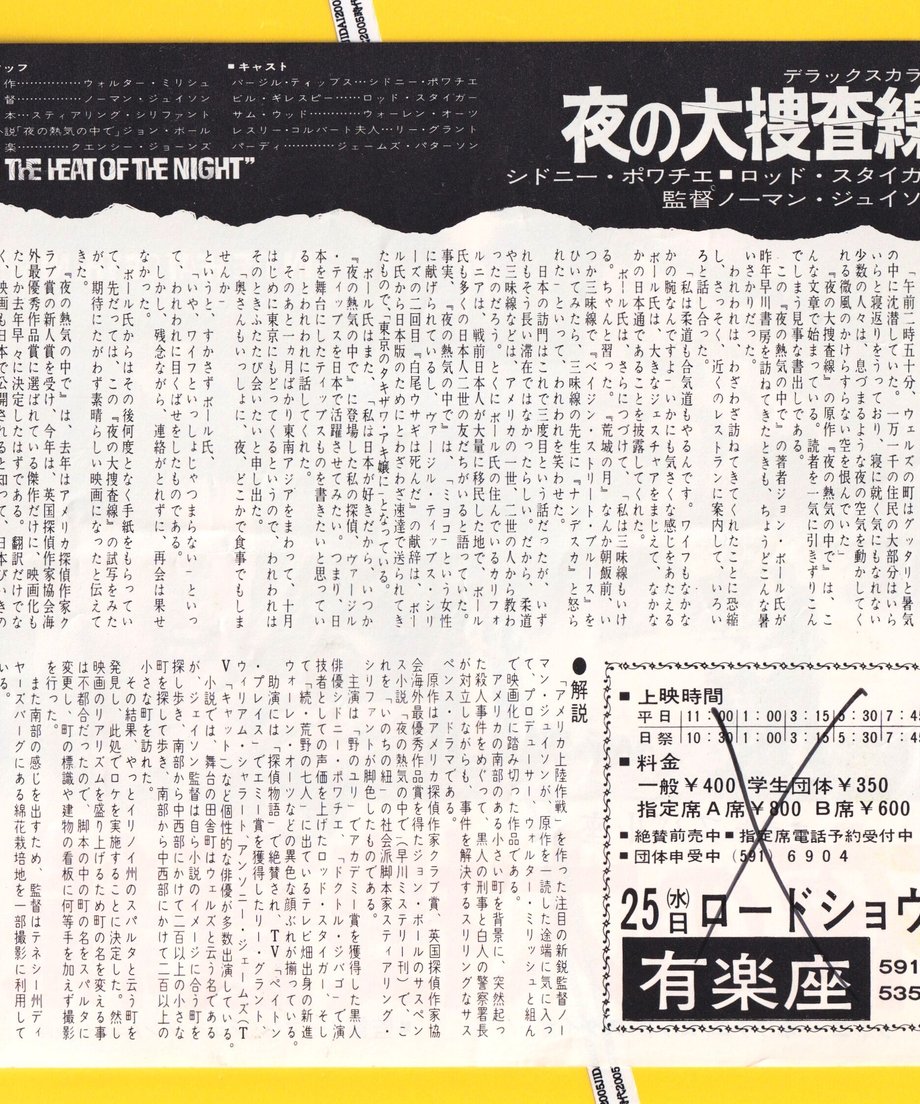 デラックスカラ
夜の大捜査線
シドニー・ポワチエ■ロッド・スタイガ
監督ノーマン・ジュイソ
■キャスト
バージル・ティップス…シドニー・ポワチエ
ビル・ギレスピー……ロッド・スタイガー
サム・ウッド………ウォーレン・オーツ
レスリー・コルバート夫人…リー・グラント
パーディ…………ジェームズ・パターソン
ッフ
作……………ウォルター・ミリシュ
督……………ノーマン・ジュイソン
本…スティアリング・シリファント
説「夜の熱気の中で」ジョン・ボール
楽………クエンシー・ジョーンズ
THE HEAT OF THE NIGHT”
「午前二時五十分、ウェルズの町はグッタリと暑気
の中に沈潜していた。一万一千の住民の大部分はいら
いらと寝返りをうっており、寝に就く気にもなれない
少数の人々は、息づまるような夜の空気を動かしてく
れる微風のかけらすらない空を恨んでいた」
『夜の大捜査線』の原作『夜の熱気の中で』は、こ
んな文章で始まっている。読者を一気に引きずりこん
でしまう見事な書出しである。
この『夜の熱気の中で』の著者ジョン・ボール氏が
昨年早川書房を訪ねてきたときも、ちょうどこんな暑
いさかりだった。
われわれは、わざわざ訪ねてきてくれたことに恐縮
し、さっそく、近くのレストランに案内して、いろい
ろと話し合った。
「私は柔道も合気道もやるんです。ワイフもなかな
かの腕なんですよ」いかにも気さくな感じをあたえる
ボール氏は、大きなジェスチャアをまじえて、なかな
かの日本通であることを披露してくれた。
ボール氏は、さらにつづけて、「私は三味線もいけ
る。ちゃんと習った。『荒城の月』なんか朝飯前、い
つか三味線で『ベイジン・ストリート・ブルース』を
ひいてみたら、三味線の先生に『ナンデスカ』と怒ら
れた」といって、われわれを笑わせた。
日本の訪問はこれで三度目という話だったが、いず
れもそう長い滞在ではなかったらしい。だから、柔道
や三味線などは、アメリカの一世、二世の人から教わ
ったのだろう。とくにボール氏の住んでいるカリフォ
ルニアは、戦前日本人が大量に移民した地で、ボール
氏も多くの日本人二世の友だちがいると語っていた。
事実、『夜の熱気の中で』は、「ミヨコ」という女性
に献げられているし、ヴァージル・ティップス・シリ
ーズの二回目『白尾ウサギは死んだ』の献辞は、ボー
ル氏から日本版のためにとわざわざ速達で送られてき
たもので、「東京のタキザワ・アキ嬢に」となっている。
ボール氏はまた、「私は日本が好きだから、いつか
『夜の熱気の中で』に登場した私の探偵、ヴァージル
・ティップスを日本で活躍させてみたい。つまり、日
本を舞台にしたティップスものを書きたいと思ってい
る」とわれわれに話してくれた。
そのあと一カ月ばかり東南アジアをまわって、十月
はじめに東京にもどってくるというので、われわれは
そのときふたたび会いたいと申し出た。
「奥さんもいっしょに、夜、どこかで食事でもしま
せんか」
というと、すかさずボール氏、
「いや、ワイフといっしょじゃつまらない」といっ
て、われわれに目くばせをしたものである。
しかし、残念ながら、連絡がとれずに、再会は果せ
なかった。
ボール氏からはその後何度となく手紙をもらってい
て、先だっては、この『夜の大捜査線』の試写をみた
が、期待にたがわず素晴らしい映画になったと伝えて
きた。
『夜の熱気の中で』は、去年はアメリカ探偵作家ク
ラブ賞の新人賞を受け、今年は、英国探偵作家協会海
外最優秀作品賞に選ばれている傑作だけに、映画化も
たしか去年早々に決定したはずである。翻訳だけでな
く、映画も日本で公開されると知って、日本びいきの
■上映時間
平日 11：00 1：00 3：15 5：30 7：45
日祭 10：30 1：00 3：15 5：30 7：45
■料金
一般￥400 学生団体￥350
指定席A席￥800 B席￥600
■絶賛前売中■指定席電話予約受付中
■団体申受中（591）6904
25(水)日ロードショウ
有楽座
591
535
●解説
「アメリカ上陸作戦」を作った注目の新鋭監督ノー
マン・ジュイソンが、原作を一読した途端に気に入っ
て、プロデューサー、ウォルター・ミリッシュと組ん
で映画化に踏み切った作品である。
アメリカの南部のある小さい町を背景に、突然起っ
た殺人事件をめぐって、黒人の刑事と白人の警察署長
が対立しながらも、事件を解決するスリリングなサス
ペンス・ドラマである。
原作はアメリカ探偵作家クラブ賞、英国探偵作家協
会海外最優秀作品賞を得たジョン・ボールのサスペン
ス小説「夜の熱気の中で（早川ミステリー刊）で、こ
れを「いのちの紐」の社会派脚本家スティアリング・
シリファントが脚色したものである。
主演は「野のユリ」でアカデミー賞を獲得した黒人
俳優シドニー・ポワチエ、「ドクトル・ジバゴ」で演
技者としての声価を上げたロッド・スタイガー、そし
て「続・荒野の七人」に出ているテレビ畑出身の新進
ウォーレン・オーツなどの異色な顔ぶれが揃っている。
助演には「探偵物語」で絶讃され、TV「ペイトン
・プレイス」でエミー賞を獲得したリー・グラント、
ウィリアム・シャラート、アンソニー・ジェームズ（T
V「キャット」）など個性的な俳優が多数出演している。
小説では、舞台の田舎町はウェルズと云う名である
が、ジェイソン監督は自ら小説のイメージに合う町を
探し歩き、南部から中西部にかけて二百以上の小さな
町を探して歩き、南部から中西部にかけて二百以上の
小さな町を訪れた。
その結果、やっとイリノイ州のスパルタと云う町を
発見し、此処でロケを実施することに決定した。然し
映画のリアリズムを盛り上げるため町の名を変える事
は不都合だったので、脚本の中の町の名をスパルタに
変更し、町の標識や建物の看板に何等手を加えず撮影
を行った。
また南部の感じを出すため、監督はテネシー州ディ
ヤーズバーグにある綿花栽培地を一部撮影に利用して
いる。